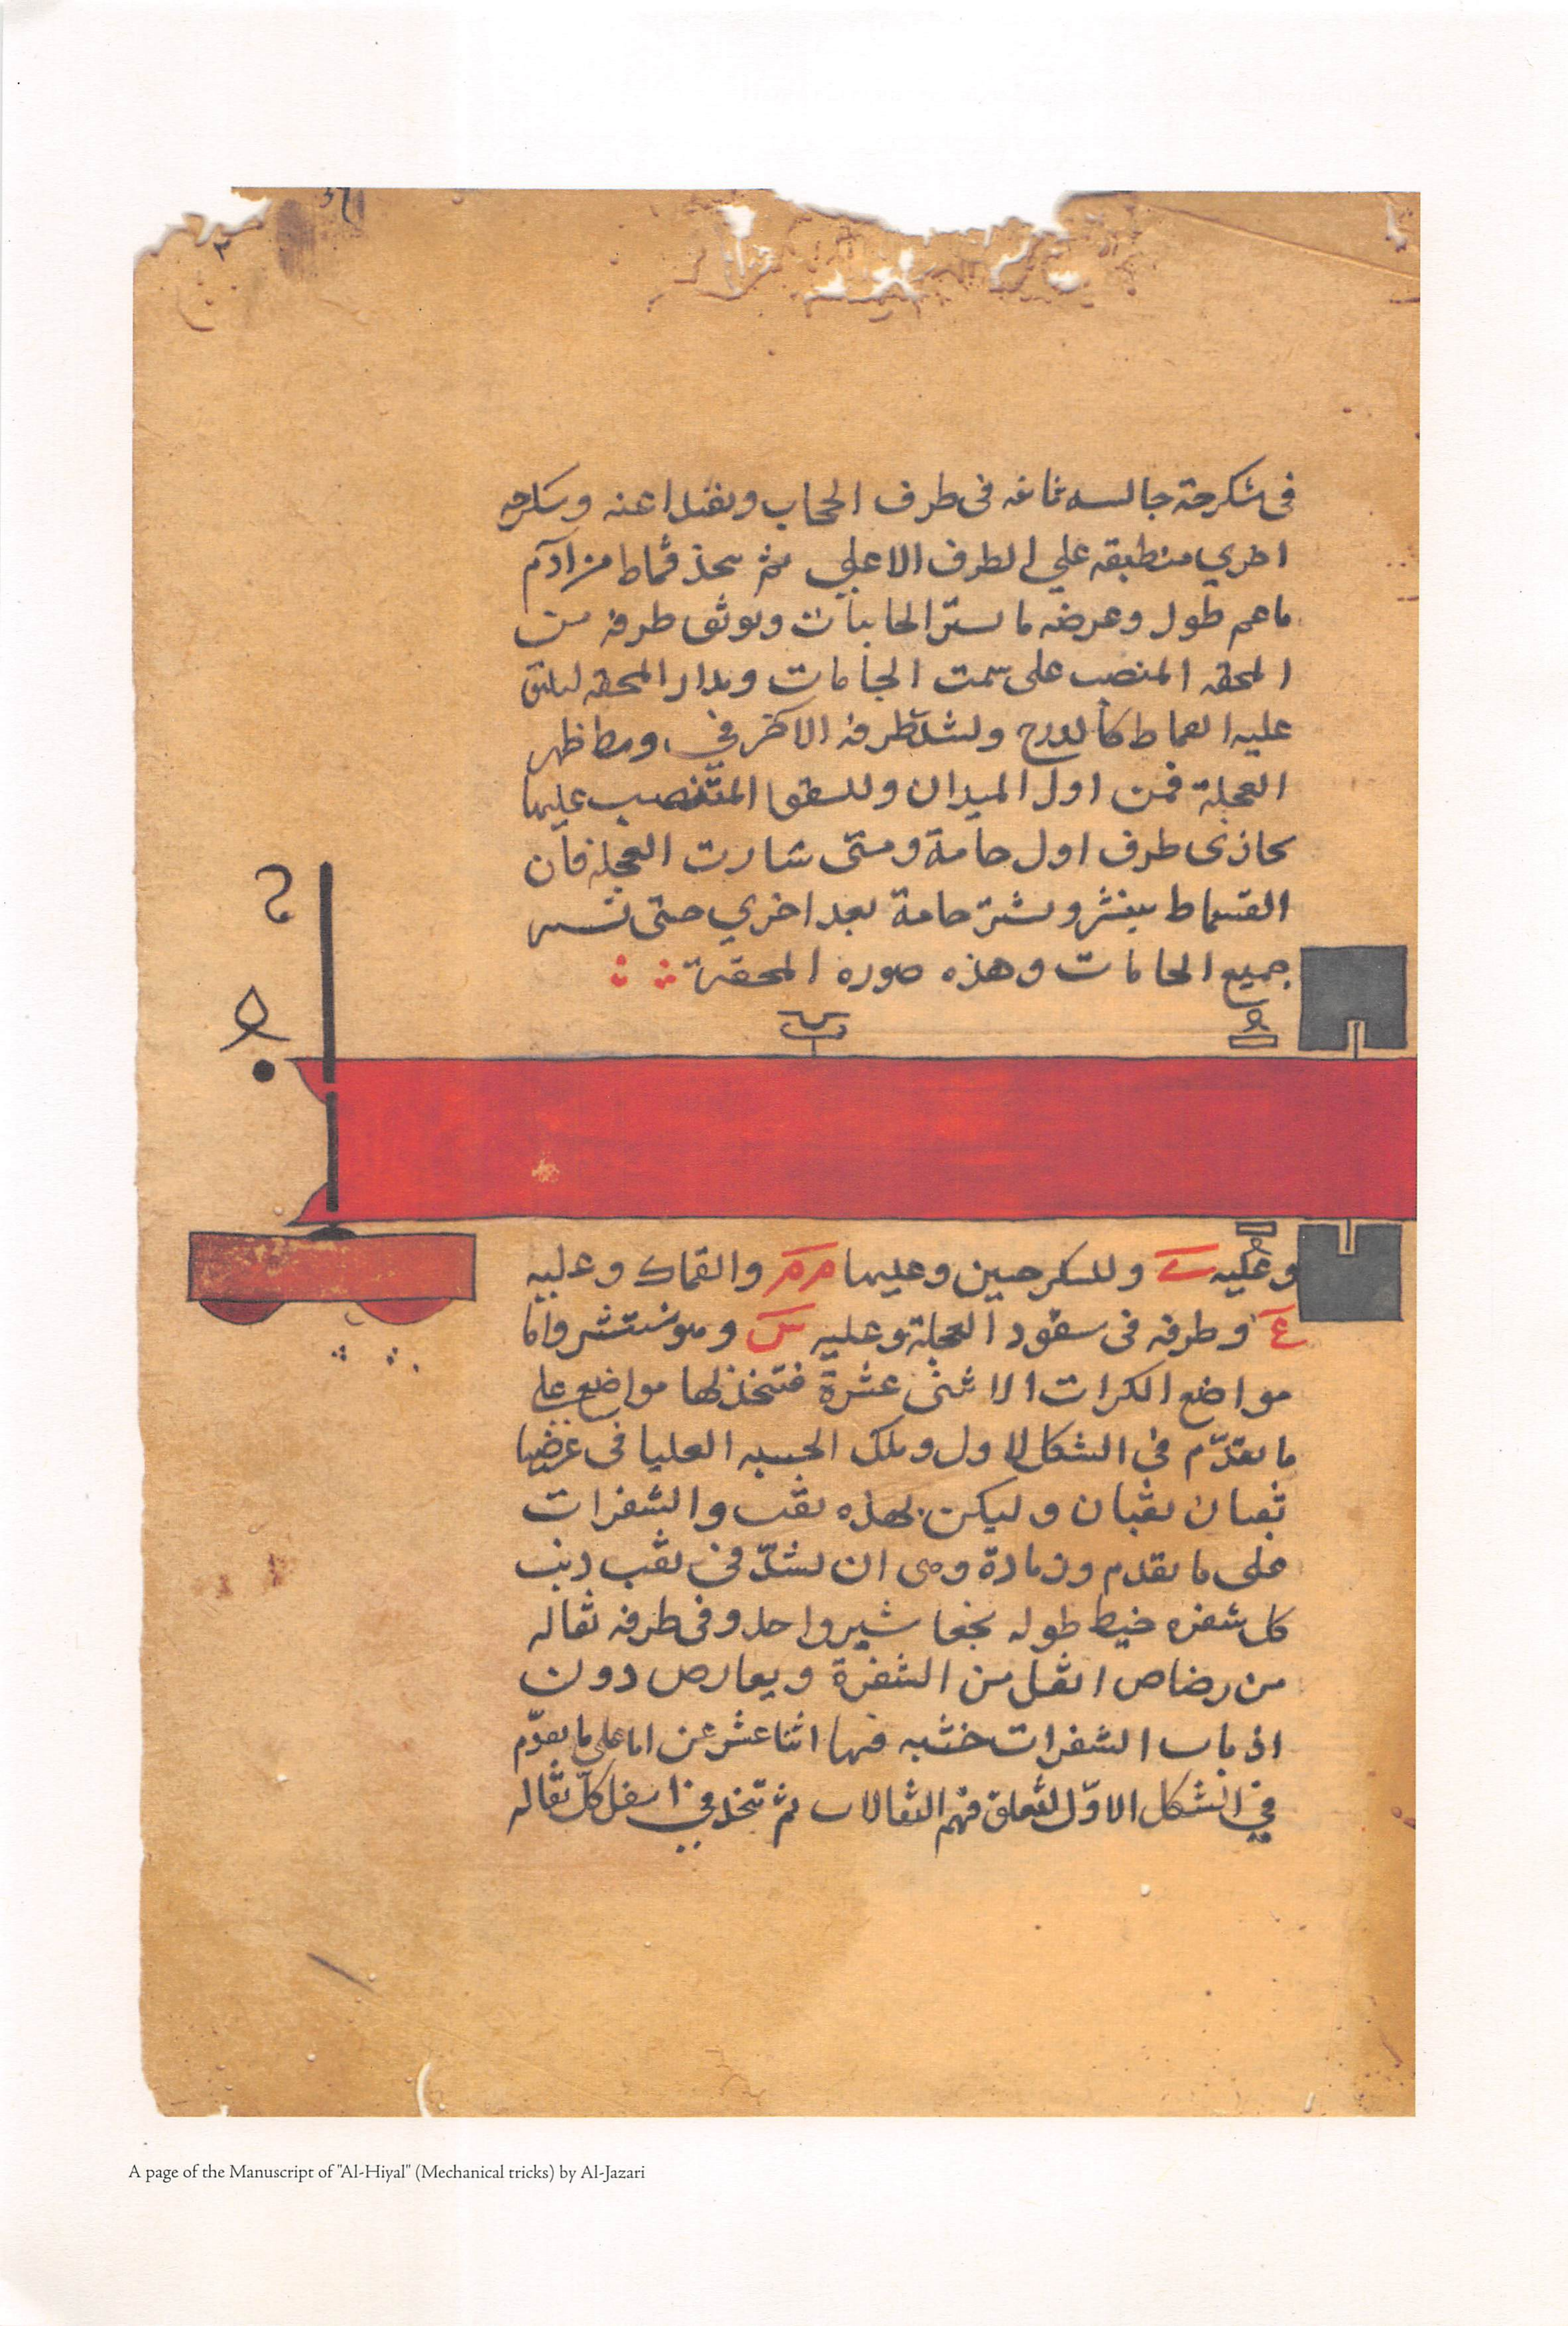 في سكرجة جالسه ثابته في طرف الحجاب وسكرجه
اخري منطبقه علي الطرف الاعلي ثم يتخذ قماط من ادم
ما عم طول وعرضه ما يستر الجامات ويوثق طرفه من
المحقه المنصب على سمت الجامات ويدار المحقه ليلتق
عليه القماط كالدرج ويشد طرفه الاخر في وسط ظهر
العجلة فمن اول الميدان وللسفود المنتصب عليها
يحاذى طرف اول جامة ومتى سارت العجلة فان
القماط ينشر ويستر جامة بعد اخري حتى تستر
جميع الجامات وهذه صوره المحقة
وعليه وللسكرجتين وعليهما م م والقماط وعليه
ع وطرفه في سفود العجلة وعليه س وهو منتشر واما
مواضع الكرات الاثنى عشرة فتتخذ لها مواضع علي
ما تقدّم في الشكل الاول وتلك الخشبه العليا في عرضها
ثقبان ثقبان وليكن بهذه ثقب والشفرات
على ما تقدم وزيادة وهي ان يشدّ في ثقب ذنب
كل شفره خيط طوله شبر واحد وفي طرفه ثقاله
من رصاص اثقل من الشفرة ويعارض دون
اذناب الشفرات خشبه فيها اثنا عشر على ما تقدّم
في الشكل الاوّل لتتعلق فيهم الثقالات ثم تتخذ في اسفل كلّ ثقاله
A page of the Manuscript of "Al-Hiyal" (Mechanical tricks) by Al-Jazari